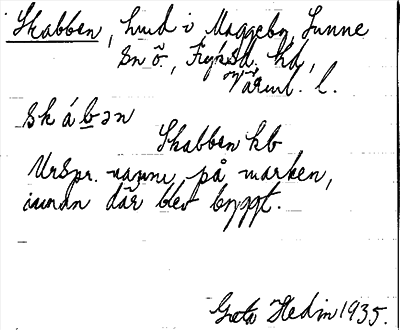 Skabben, hmd i Maggeby, Sunne
sn ö., Fryksd. hd,
Värml. l.
skábən
Skabben hb
Urspr. namn på marken,
innan där blev byggt.
Greta Hedin 1935.